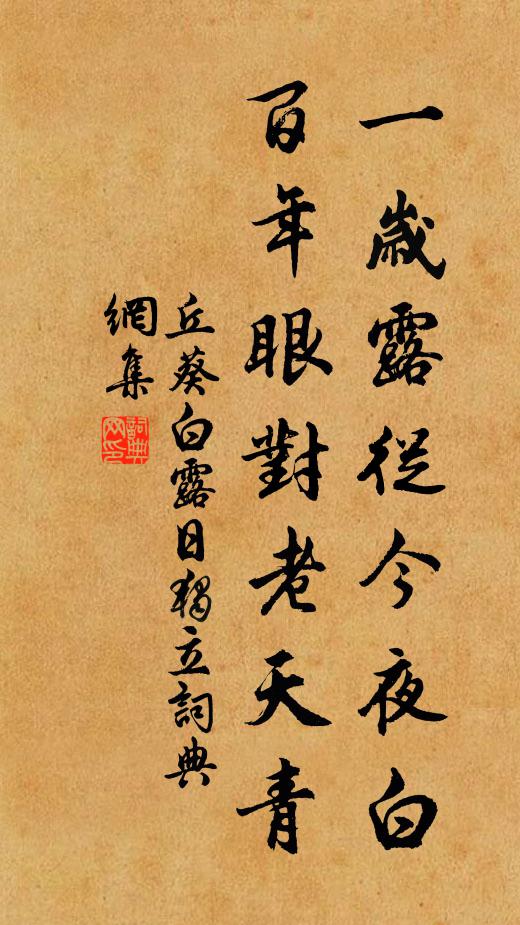 一歲露從今夜白
百年眼對老天青
丘葵白露日獨立詞典
網集
詞典网印